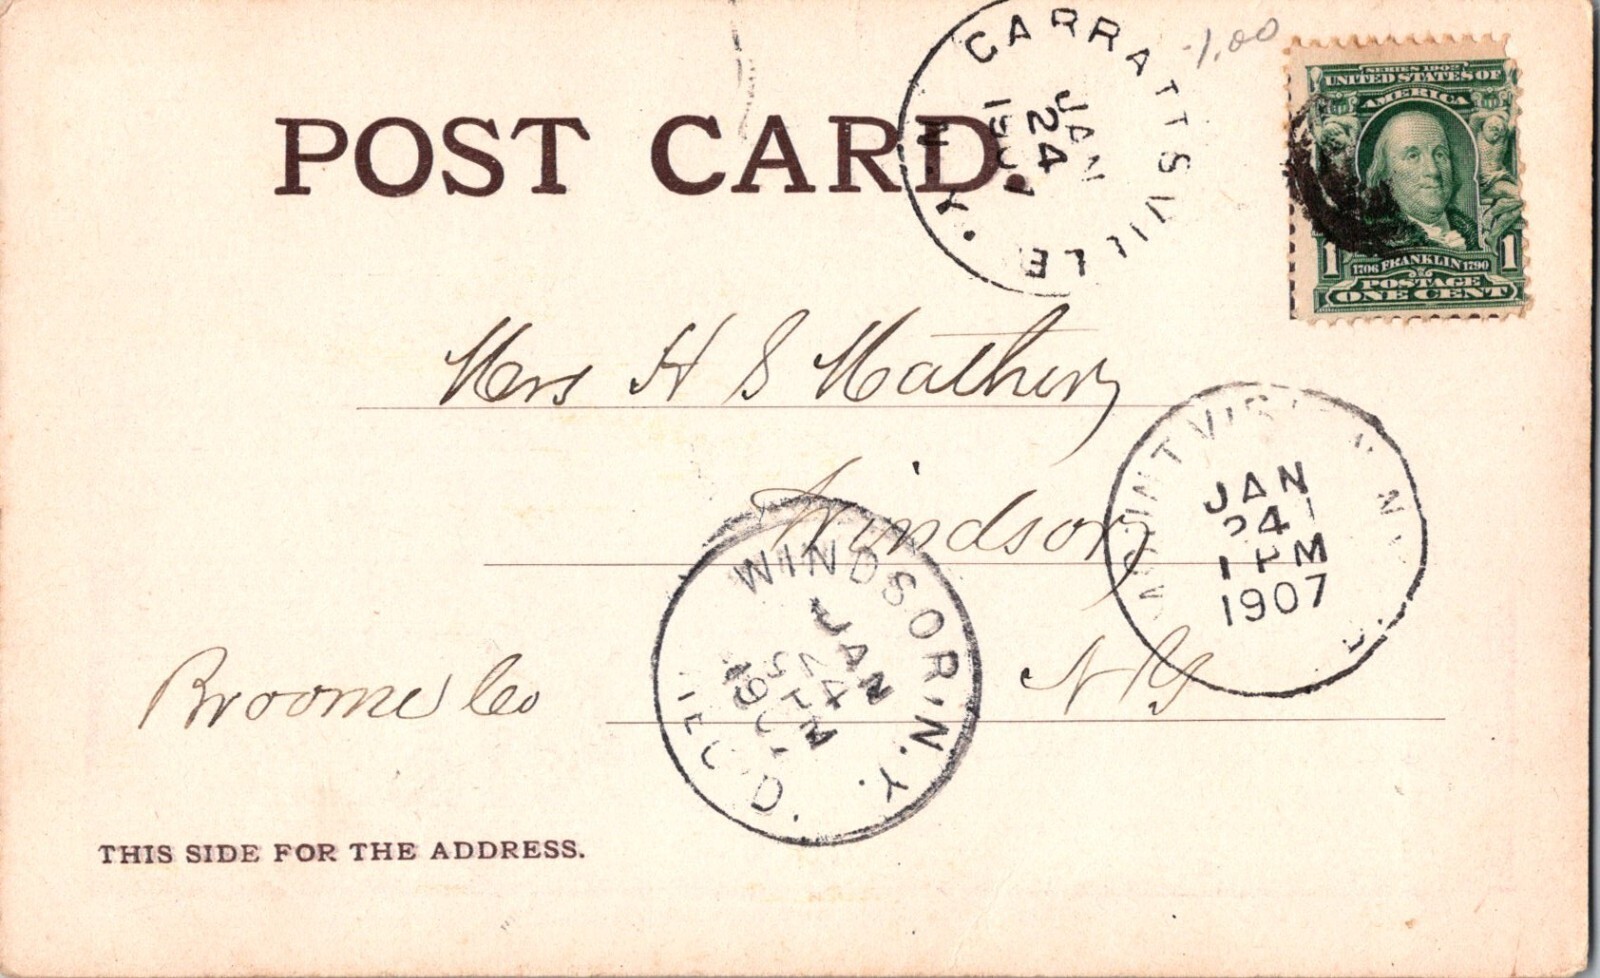 -1.00
GARRATTSVILLE N.Y.
JAN
24
1907
SERIES 1902
UNITED STATES OF
AMERICA
1 1706 FRANKLIN 1790 1
POSTAGE
ONE CENT
POST CARD.
Mrs H S Mathery
JAN
24
1 PM
1907
Windsor
WINDSOR. N.Y.
JAN
24
5 PM
REC'D.
Broome Co
N Y
THIS SIDE FOR THE ADDRESS.